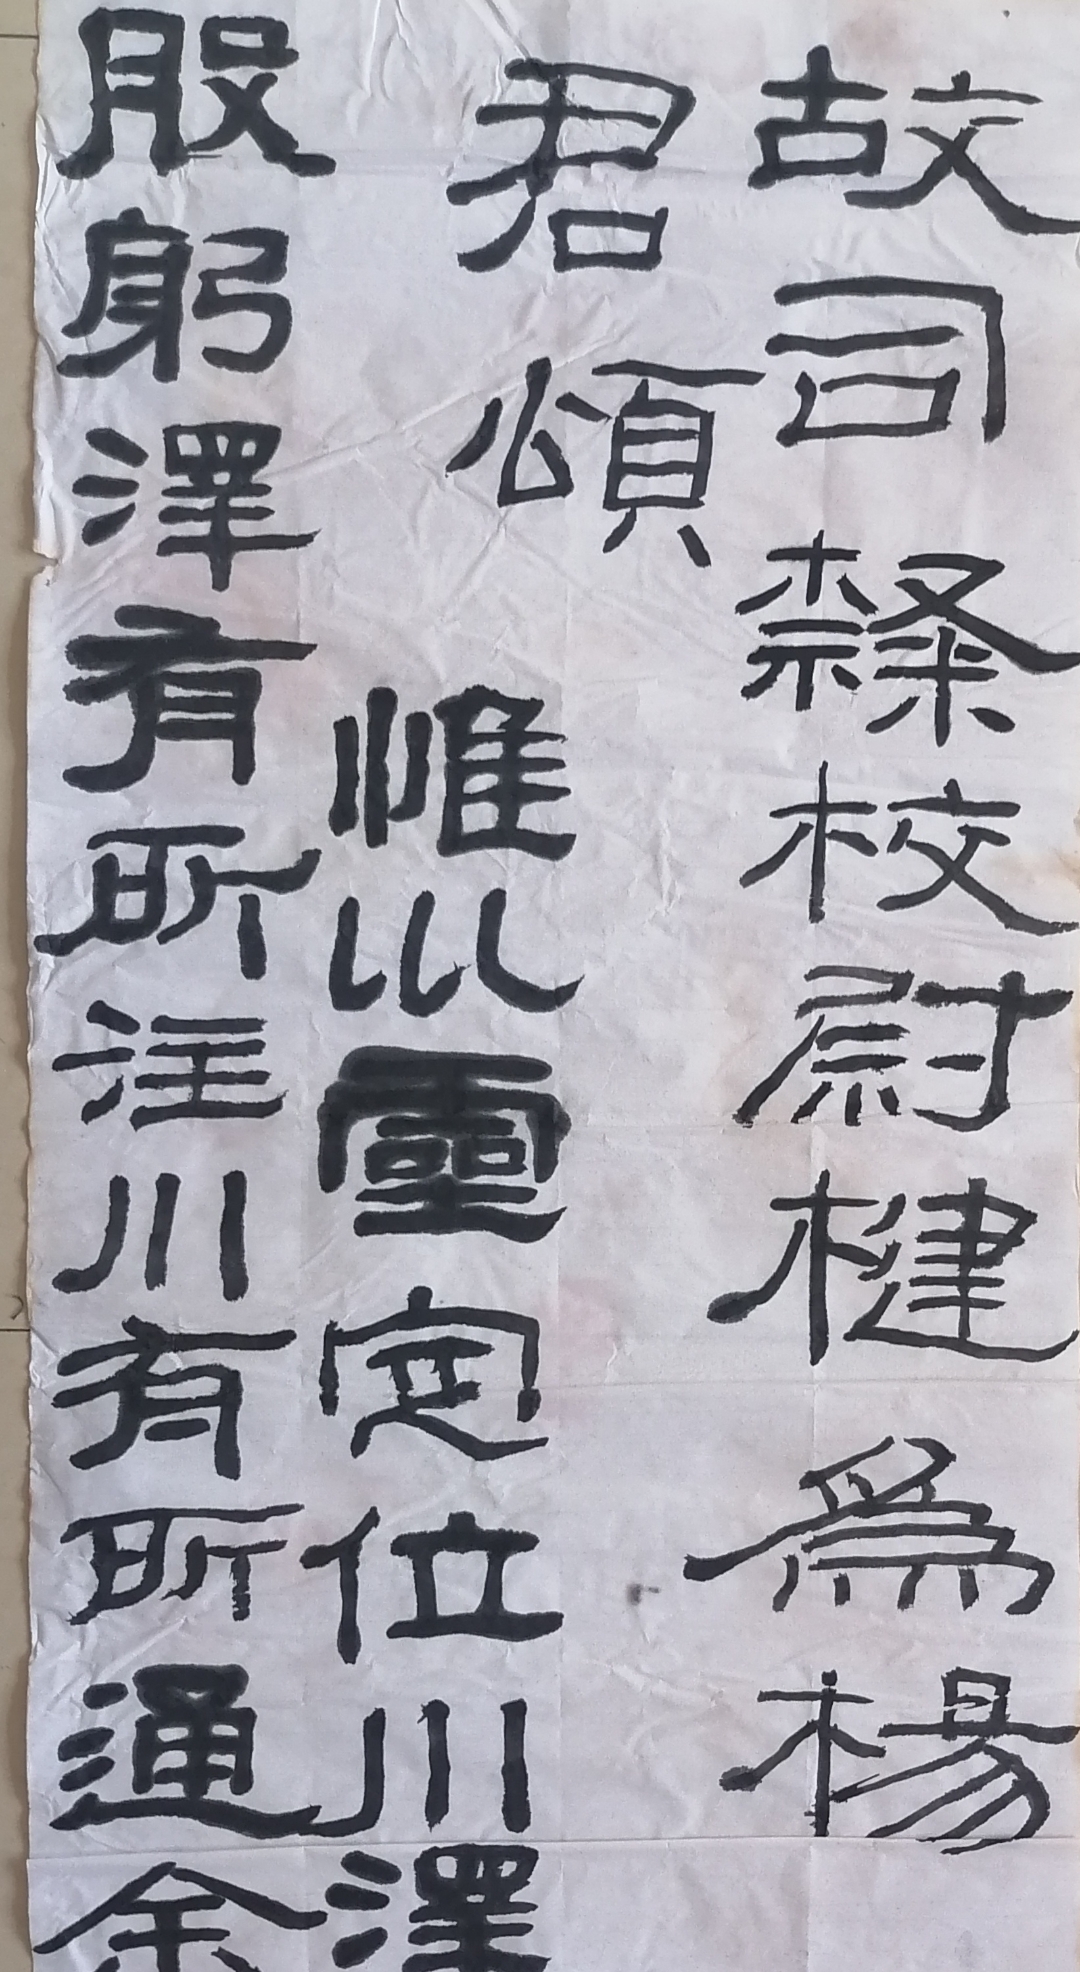 故司隸校尉楗爲楊
君頌
惟巛靈定位川澤
股躬澤有所注川有所通余